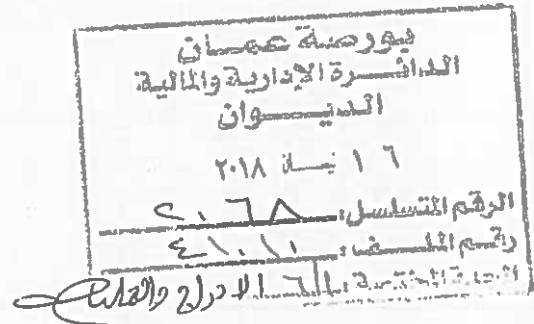 بورصة عمان
الدائرة الإدارية والمالية
الديوان
١٦ نيسان ٢٠١٨
الرقم المتسلسل: ٢٠٦٨
رقم الملف: ٤١٠١١
الجهة المختصة: الادراج والعمليات